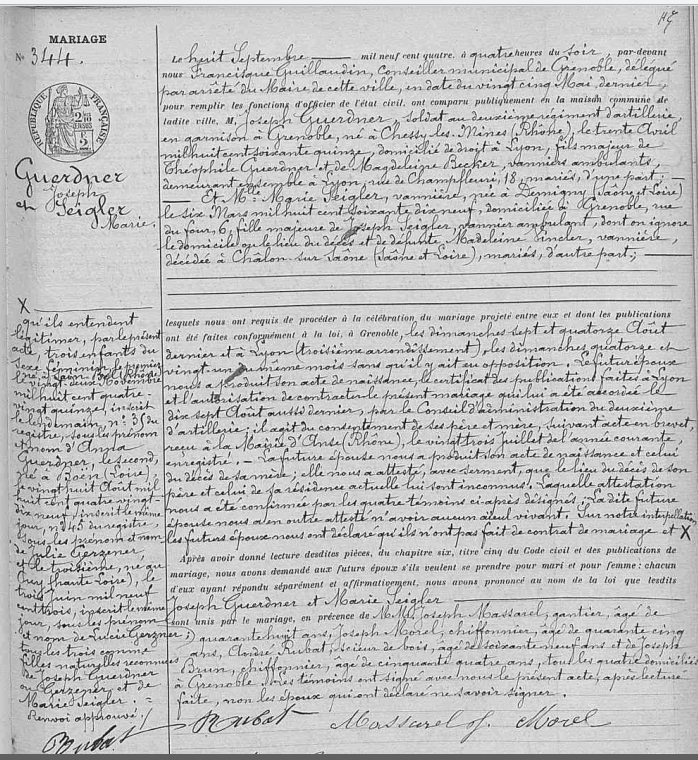 MARIAGE
N° 344.
RÉPUBLIQUE FRANÇAISE
Guerdner
Joseph
et
Seigler
Marie.
Le huit Septembre mil neuf cent quatre, à quatre heures du soir, par-devant
nous Francisque Guillaudin, Conseiller municipal de Grenoble, délégué
par arrêté du Maire de cette ville, en date du vingt cinq Mai dernier,
pour remplir les fonctions d'officier de l'état civil, ont comparu publiquement en la maison commune de
ladite ville, M. Joseph Guerdner, soldat au deuxième régiment d'artillerie,
en garnison à Grenoble, né à Chessy-les-Mines (Rhône), le trente Avril
mil huit cent soixante quinze, domicilié de droit à Lyon, fils majeur de
Théophile Guerdner et de Magdeleine Becker, vanniers ambulants,
demeurant ensemble à Lyon, rue de Champfleuri, 18, mariés, d'une part;
Et Mlle Marie Seigler, vannière, née à Demigny (Saône et Loire)
le six Mars mil huit cent soixante dix neuf, domiciliée à Grenoble, rue
du four, 6, fille majeure de Joseph Seigler, vannier ambulant, dont on ignore
le domicile ou le lieu du décès et de défunte Madeleine Fincler, vannière,
décédée à Châlon-sur-Saône (Saône et Loire), mariés, d'autre part;
lesquels nous ont requis de procéder à la célébration du mariage projeté entre eux et dont les publications
ont été faites conformément à la loi, à Grenoble, les dimanches sept et quatorze Août
dernier et à Lyon (troisième arrondissement), les dimanches quatorze et
vingt-un même mois sans qu'il y ait eu opposition. Le futur époux
nous a produit son acte de naissance, le certificat des publications faites à Lyon
et l'autorisation de contracter le présent mariage qui lui a été accordée le
dix sept Août aussi dernier, par le Conseil d'administration du deuxième
d'artillerie; il agit du consentement de ses père et mère, suivant acte en brevet,
reçu à la Mairie d'Anse (Rhône), le vingt trois Juillet de l'année courante,
enregistré. La future épouse nous a produit son acte de naissance et celui
du décès de sa mère; elle nous a attesté, avec serment, que le lieu du décès de son
père et celui de sa résidence actuelle lui sont inconnus. Laquelle attestation
nous a été confirmée par les quatre témoins ci-après désignés. La dite future
épouse nous a en outre attesté n'avoir aucun aïeul vivant. Sur notre interpellation,
les futurs époux nous ont déclaré qu'ils n'ont pas fait de contrat de mariage et X
Après avoir donné lecture desdites pièces, du chapitre six, titre cinq du Code civil et des publications de
mariage, nous avons demandé aux futurs époux s'ils veulent se prendre pour mari et pour femme: chacun
d'eux ayant répondu séparément et affirmativement, nous avons prononcé au nom de la loi que lesdits
Joseph Guerdner et Marie Seigler
sont unis par le mariage, en présence de MM. Joseph Massarel, gantier, âgé de
quarante huit ans, Joseph Morel, chiffonnier, âgé de quarante cinq
ans, André Rubat, scieur de bois, âgé de soixante neuf ans et de Joseph
Brun, chiffonnier, âgé de cinquante quatre ans, tous les quatre domiciliés
à Grenoble. Les témoins ont signé avec nous le présent acte, après lecture
faite, non les époux qui ont déclaré ne savoir signer.
X
qu'ils entendent
légitimer, par le présent
acte, trois enfants du
sexe féminin, le premier
le vingt deux Novembre
mil huit cent quatre-
vingt quinze, inscrit
le lendemain, n° 3 du
registre, sous les prénom
et nom d'Anna
Guerdner, le second,
né à Boën (Loire),
le vingt huit Août mil
huit cent quatre vingt-
dix neuf, inscrit le même
jour, n° 45 du registre,
sous les prénom et nom
de Julie Gerzener,
et le troisième, né au
Puy (haute Loire), le
trois Juin mil neuf
cent trois, inscrit le même
jour, sous les prénom
et nom de Lucie Gerzner;
tous les trois comme
filles naturelles reconnues
de Joseph Guerdner
ou Gerzener et de
Marie Seigler.
Renvoi approuvé.
Rubat
Rubat Massarel J. Morel